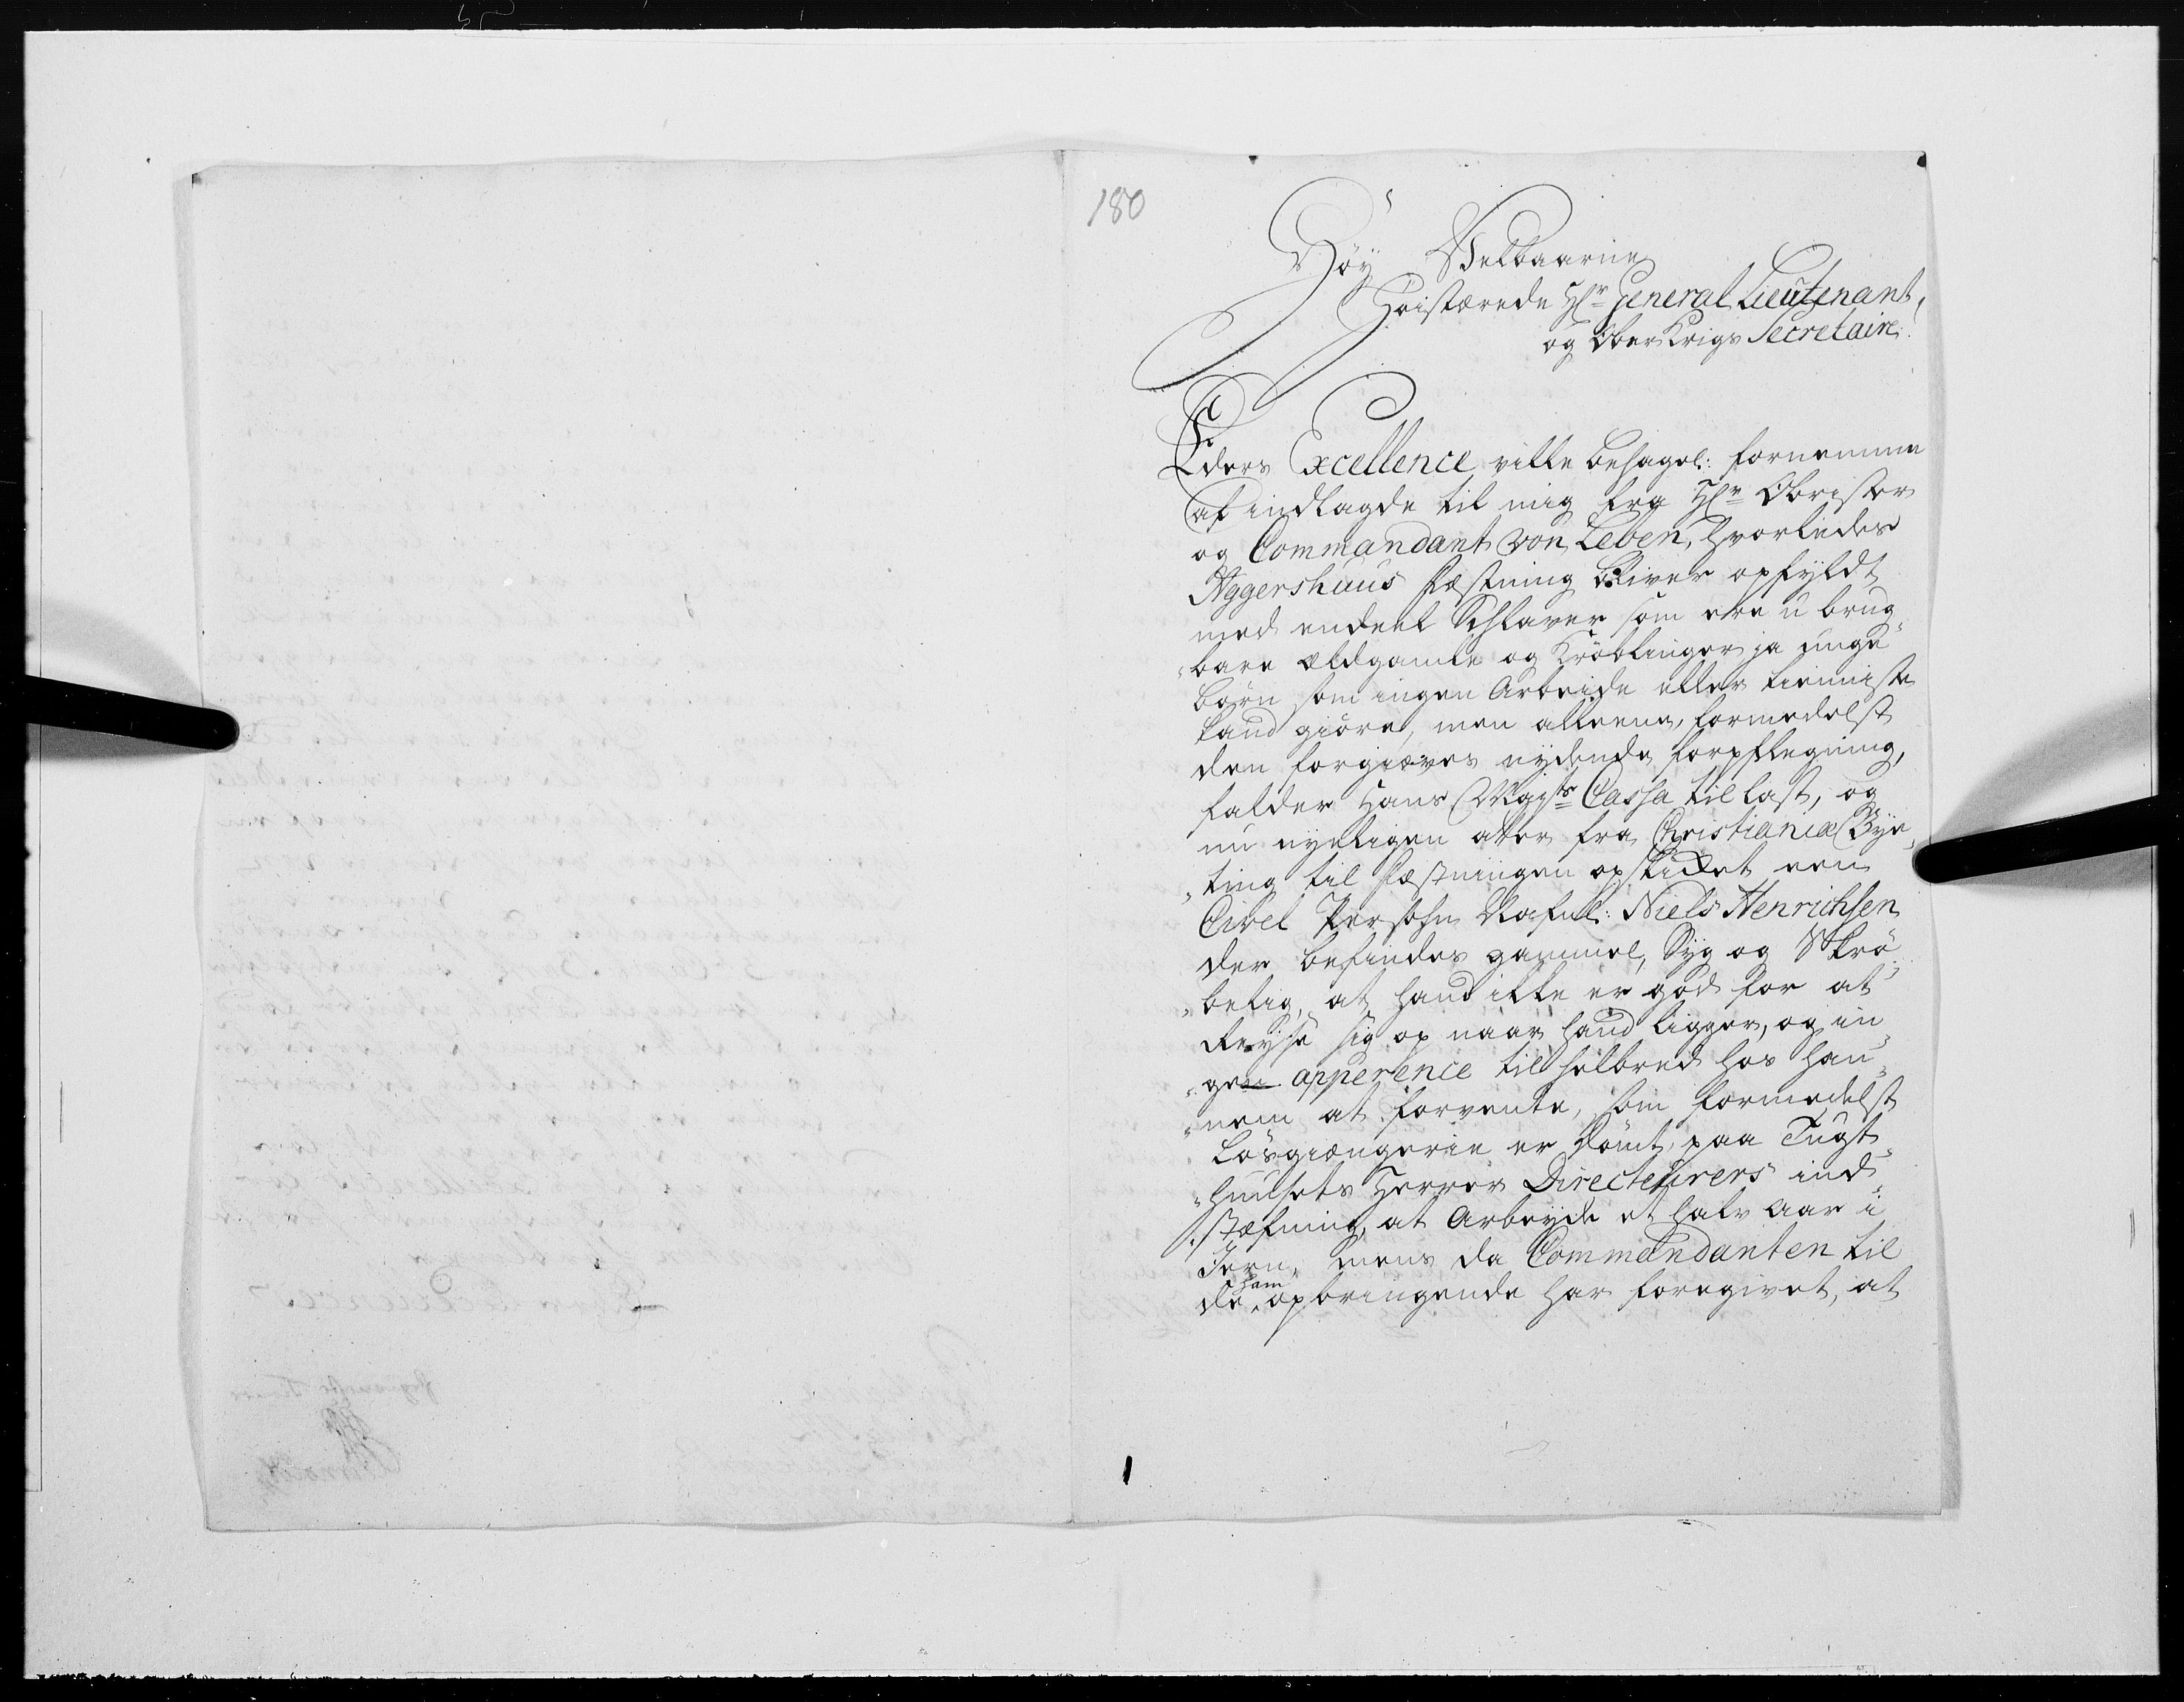 180
Høy Velbaarne
Høistærede Hr General Lieutenant,
og Ober Krigs Secretaire.
Eders Excellence ville behagel: fornemme
af indlagde til mig fra Hr Obrister
og Commandant von Leben, hvorledes
Aggershuus Fæstning bliver opfyldt
med endeel Schlaver som ere u brug„
„bare ældgamle og Krøblinger ja unge
børn som ingen Arbeide eller tienniste
kand giøre, men alleene, formedelst
den forgiæves nydende forpflegning,
falder Hans Mayts Cassa til last, og
nu nyeligen atter fra Christianiæ Bye„
„ting til Fæstningen opskikket een
Civel Persohn Nafnl: Niels Henrichsen
der befindes gammel, Syg og Skrø„
„belig, at hand ikke er god for at
Reyse sig op naar hand ligger, og in„
„gen apperence til helbred hos han„
„nem at forvente, som formedelst
Løsgiængerie er dømt, paa Tugt„
„huusets Herrer Directeurers ind„
„stefning, at Arbeyde et halv Aar i
Jern, mens da Commandanten til
ham
de opbringende har foregivet, at